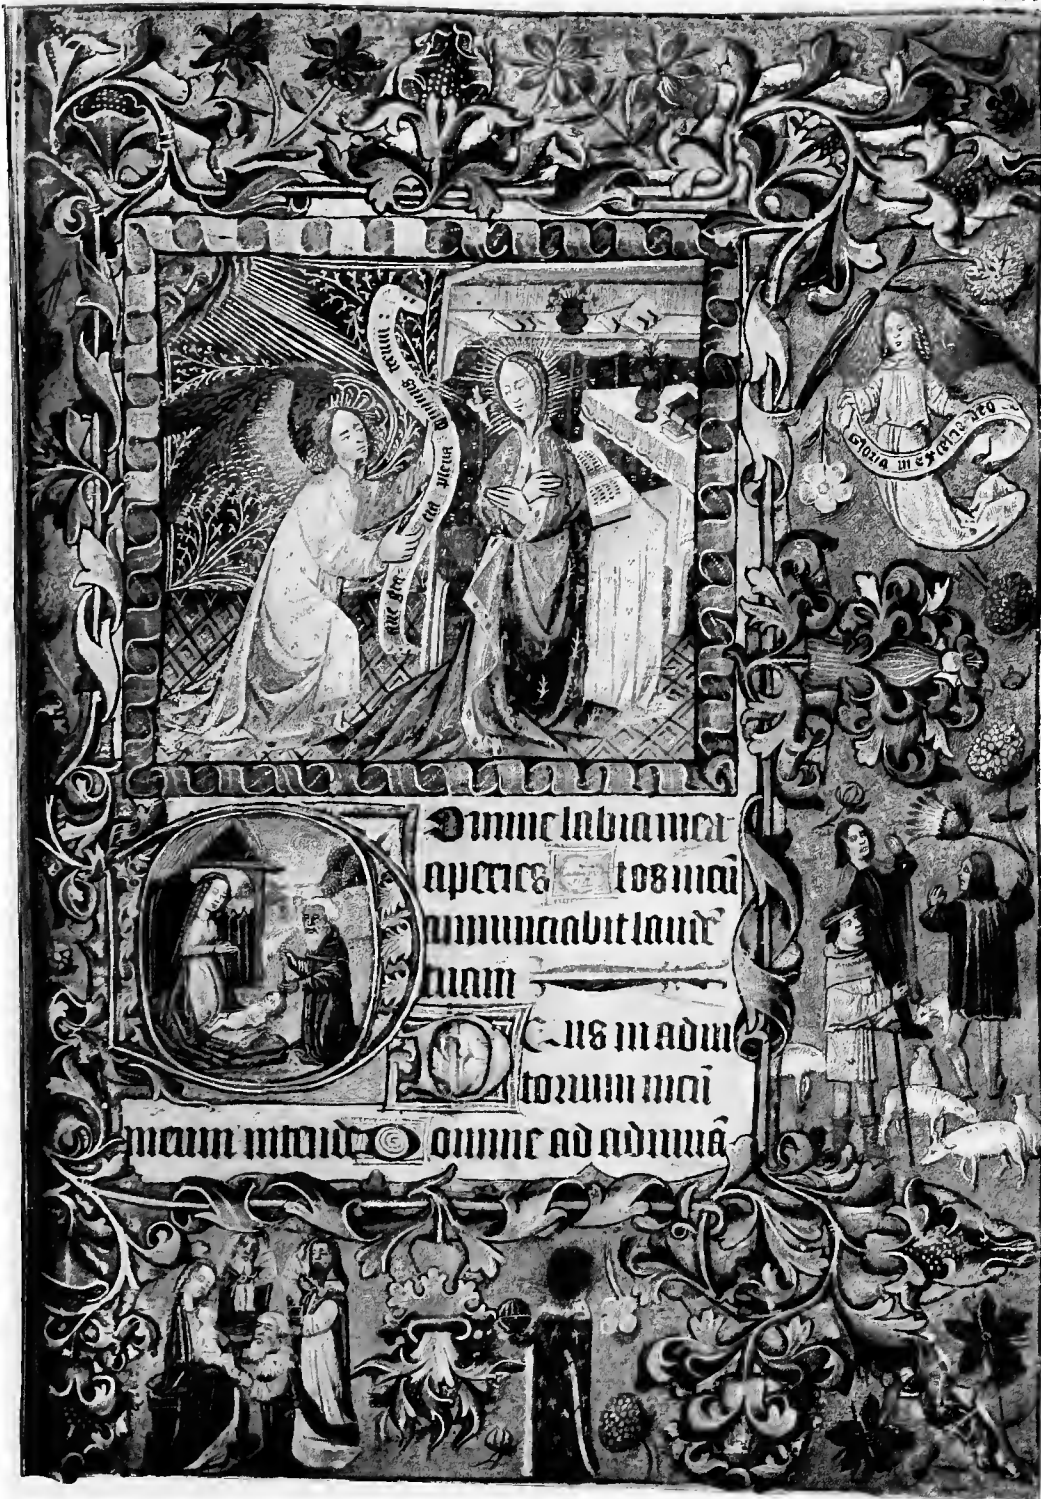 aue gra cia plena dominus tecum
Gloria in excelsis deo
Domine labia mea
aperies Et os meū
annunciabit laudē
tuam
Deus in adiu
torium meū
meum intende Domine ad adiuuā